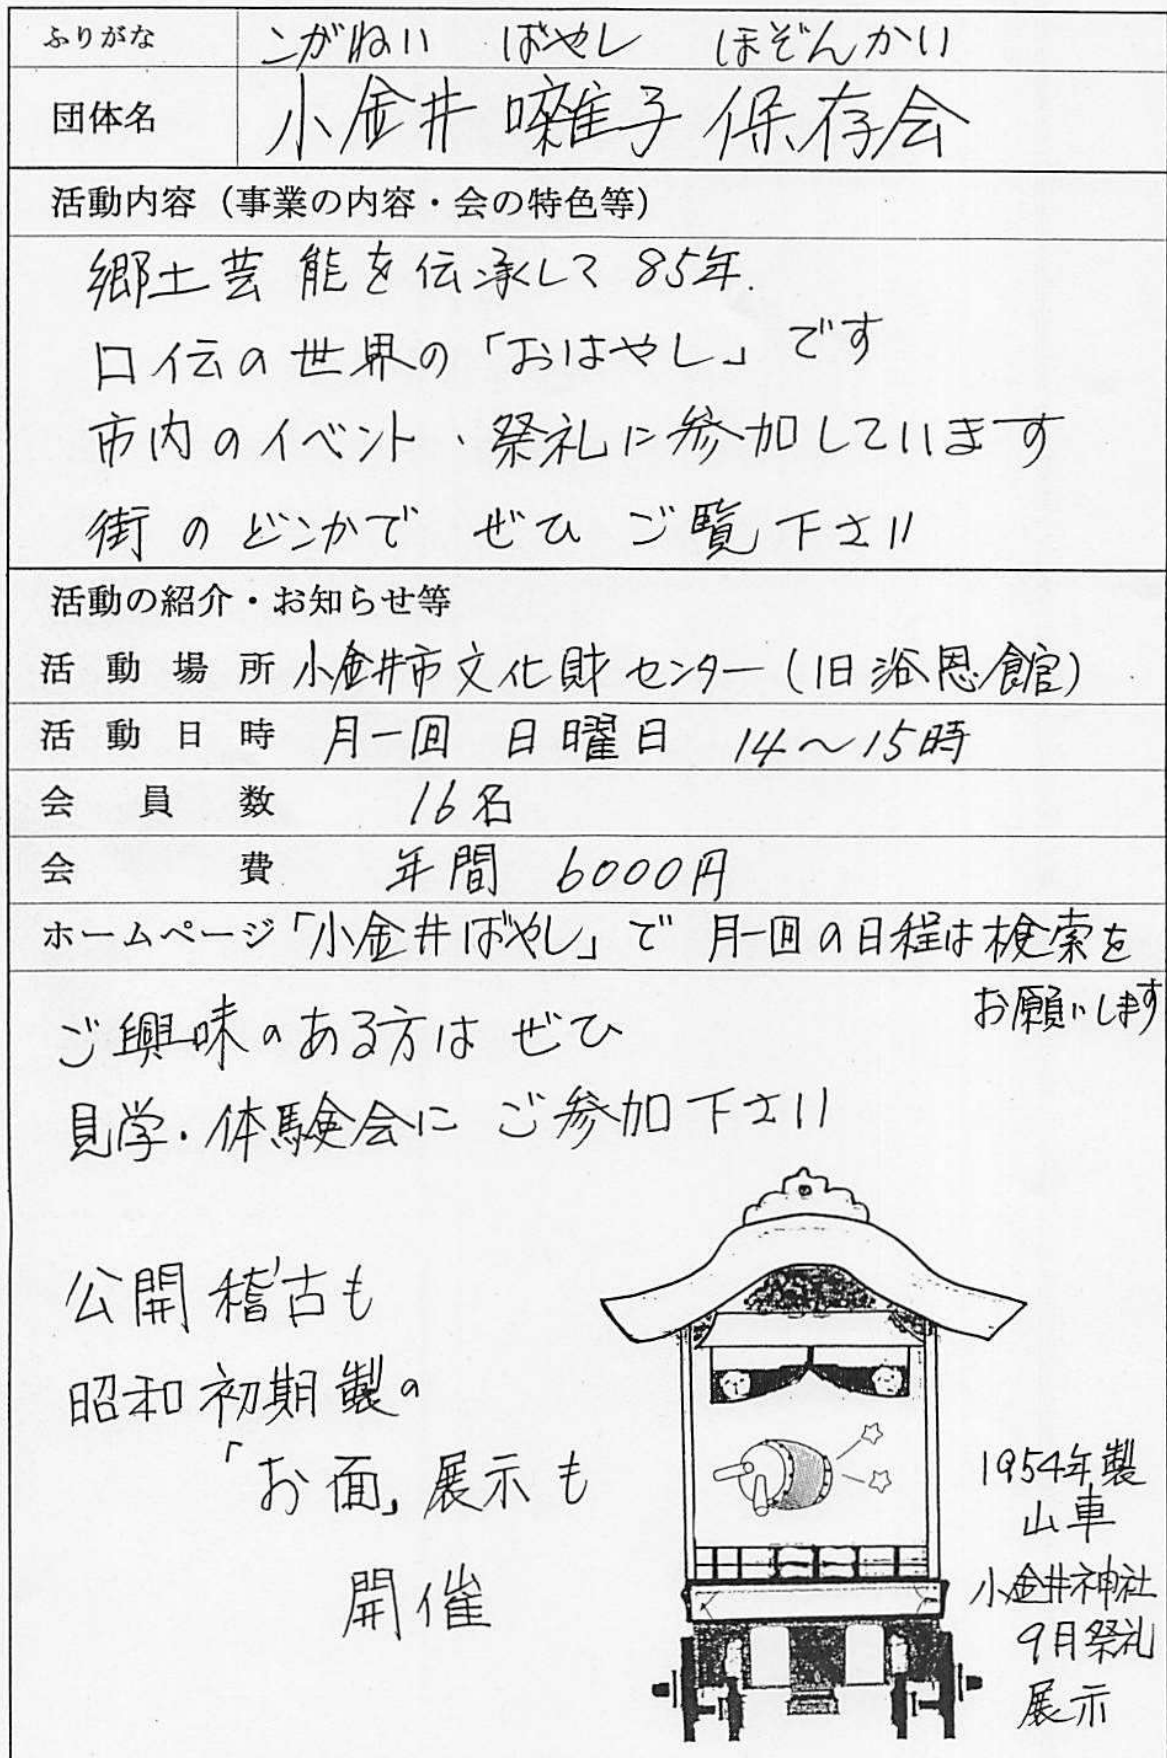 ふりがな こがねい ばやし ほぞんかい
団体名 小金井 囃子 保存会
活動内容（事業の内容・会の特色等）
郷土芸能を伝承して 85年.
口伝の世界の「おはやし」です
市内のイベント、祭礼に参加しています
街のどこかで ぜひ ご覧下さい
活動の紹介・お知らせ等
活動場所 小金井市文化財センター（旧浴恩館）
活動日時 月一回 日曜日 14～15時
会員数 16名
会費 年間 6000円
ホームページ「小金井ばやし」で 月一回の日程は検索を
お願いします
ご興味のある方は ぜひ
見学・体験会に ご参加下さい
公開稽古も
昭和初期製の
「お面」展示も
開催
1954年製
山車
小金井神社
9月祭礼
展示